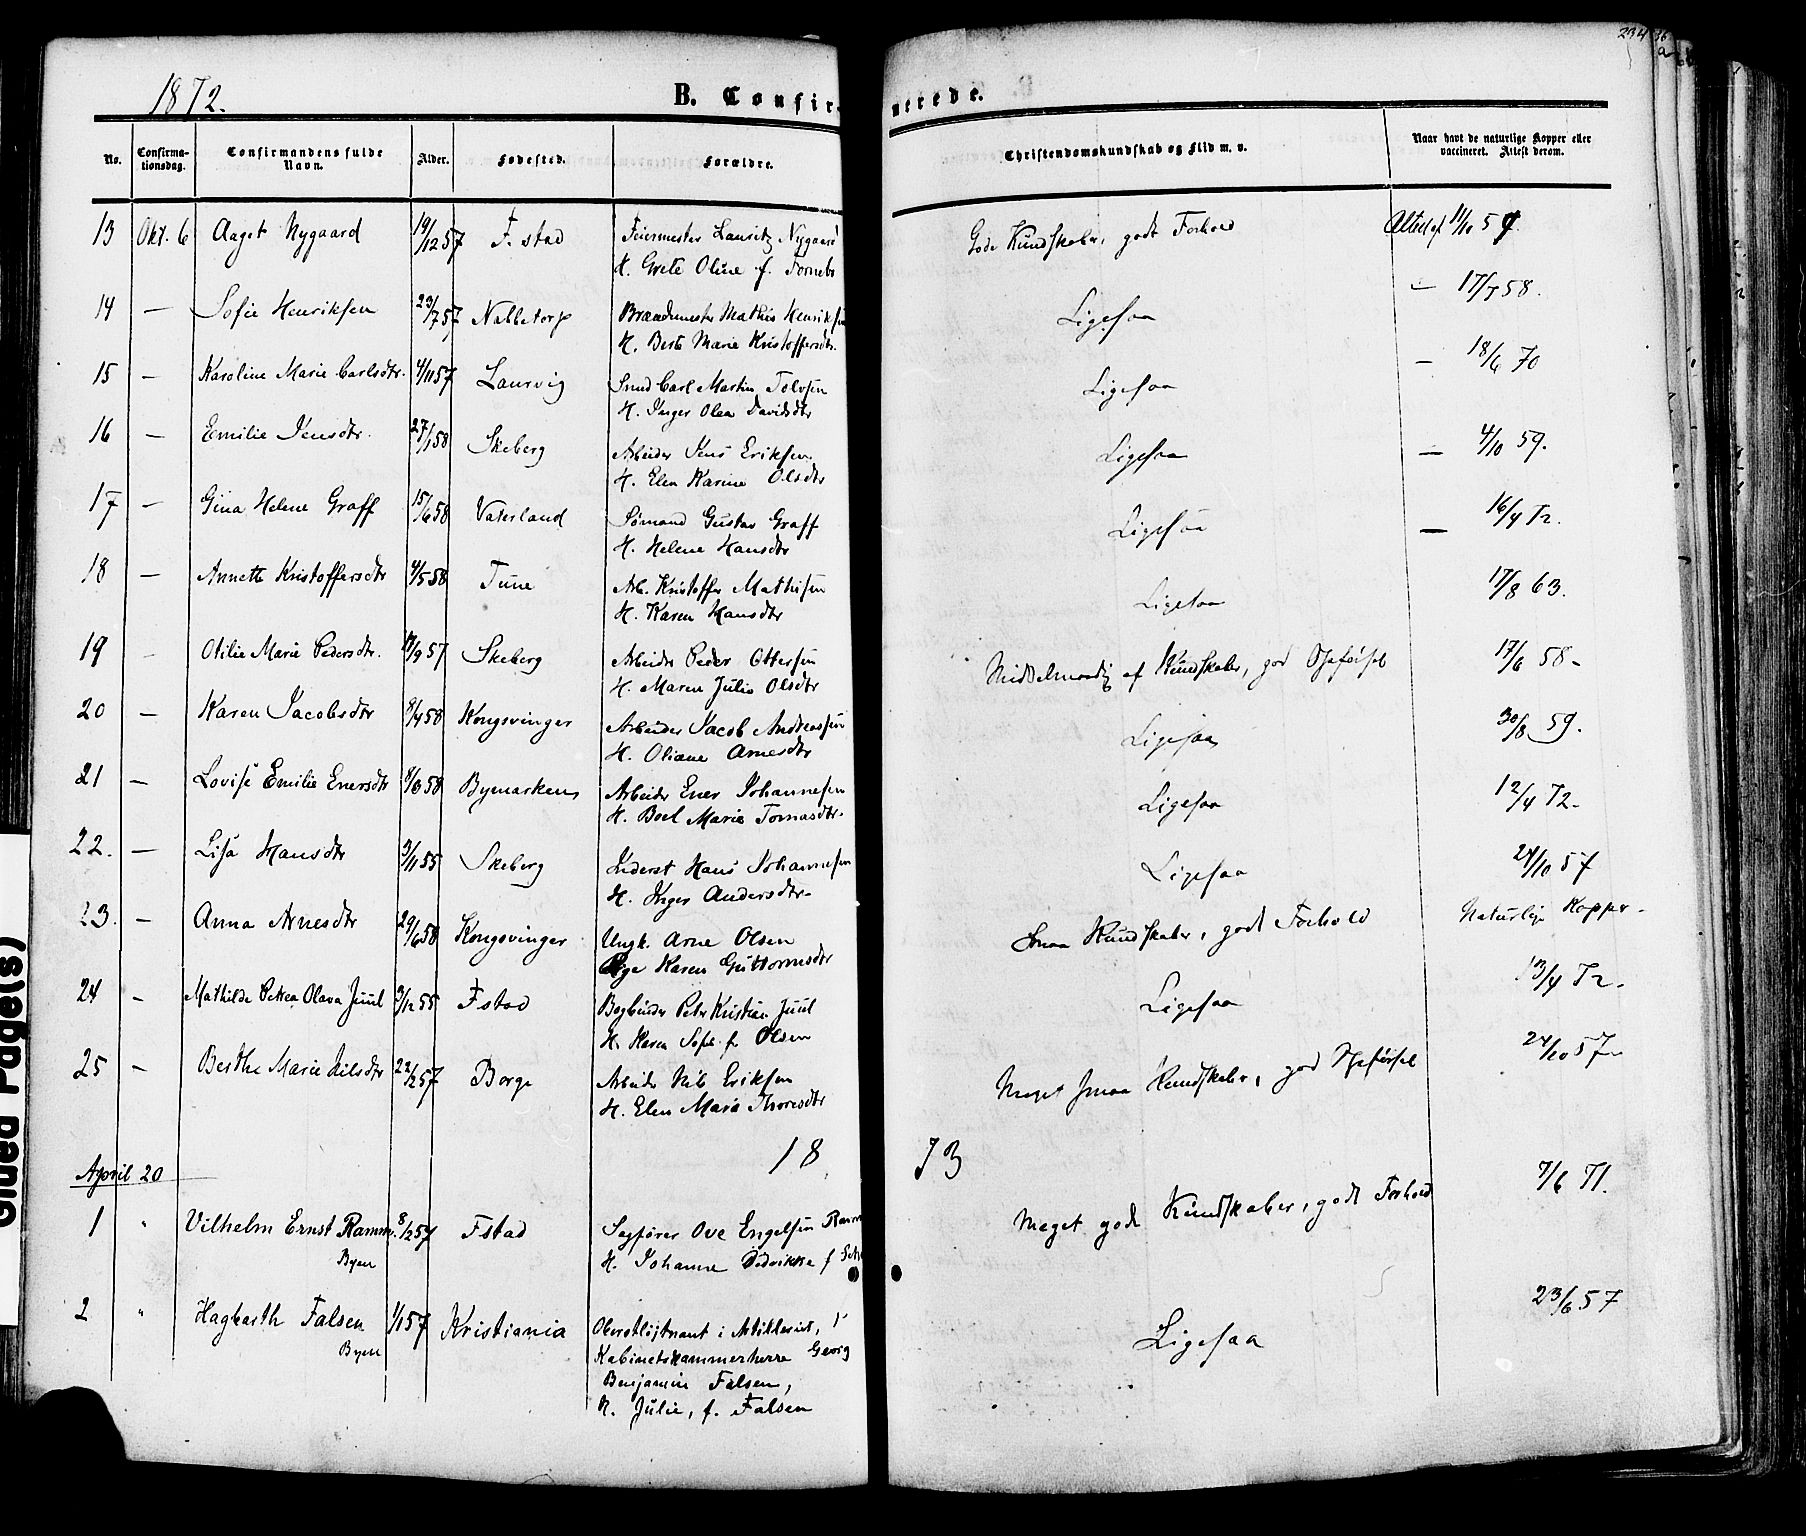 234
1872.
B. Confir- merede.
No.
Confirma-
tionsdag.
Confirmandens fulde
Navn.
Alder.
Fødested.
Forældre.
Christendomskundskab og Flid m. v.
Naar havt de naturlige Kopper eller
vaccineret. Attest derom.
13 Okt. 6 Aaget Nygaard 19/12 57 F. stad Feiermester Lauritz Nygaard Gode Kundskaber, godt Forhold Attest af 11/10 57.
H. Grete Oline f. Tornebr
14 — Sofie Henriksen 23/7 57 Nabbetorp Brandmester Mathis Henriksen Ligesaa — 17/7 58.
H. Berte Marie Kristoffersdtr.
15 — Karoline Marie Carlsdtr. 4/11 57 Laurvig Smed Carl Martin Tolvsen Ligesaa — 18/6 70
H. Inger Olea Davidsdtr
16 — Emilie Jensdtr. 27/1 58 Skeberg Arbeider Jens Eriksen Ligesaa — 4/10 59.
H. Elen Karine Olsdtr
17 — Gina Helene Graff 15/6 58 Vaterland Sømand Gustav Graff Ligesaa — 16/4 72.
H. Helene Hansdtr
18 — Annette Kristoffersdtr 4/5 58 Tune Arb. Kristoffer Mathisen Ligesaa 17/8 63.
H. Karen Hansdtr
19 — Otilie Marie Pedersdtr. 17/9 57 Skeberg Arbeider Peder Ottersen Middelmaadig af Kundskaber, god Opførsel 17/6 58-
H. Maren Julie Olsdtr
20 — Karen Jacobsdtr 8/4 58 Kongsvinger Arbeider Jacob Andreassen Ligesaa 30/8 59.
H. Oliane Arnesdtr
21 — Lovise Emilie Enersdtr 8/6 58 Bymarken Arbeider Ener Johannesen Ligesaa 12/4 72-
H. Boel Marie Tomasdtr.
22. — Lisa Hansdtr 3/11 55 Skeberg Inderst Hans Johannesen Ligesaa 24/10 57
H. Inger Andersdtr-
23. — Anna Arnesdtr 29/6 58 Kongsvinger Ungk. Arne Olsen Smaa Kundskaber, godt Forhold Naturlige Kopper-
Pige Karen Guttormsdtr
24 - Mathilde Petrea Olava Juul 3/12 55 Fstad Bogbinder Peter Kristian Juul Ligesaa 13/4 72.
H. Karen Sofie f. Olsen
25 - Berthe Marie Nilsdtr 22/2 57 Borge Arbeider Nils Eriksen Meget smaa Kundskaber, god Opførsel 24/10 57-
H. Elen Maria Thoresdtr
18 73
April 20
1 " Vilhelm Ernst Ramm. 8/2 57 Fstad Sagfører Ove Engelsen Ramm Meget gode Kundskaber, godt Forhold 7/6 71.
Byen H. Johanne Fredrikke f
2 " Hagbarth Falsen 1/1 57 Kristiania Oberstløjtnant i Artilleriet, Ligesaa 23/6 57
Byen Kabinetskammerherre Georg
Benjamin Falsen,
H. Julie, f. Falsen
Glued Page(s)